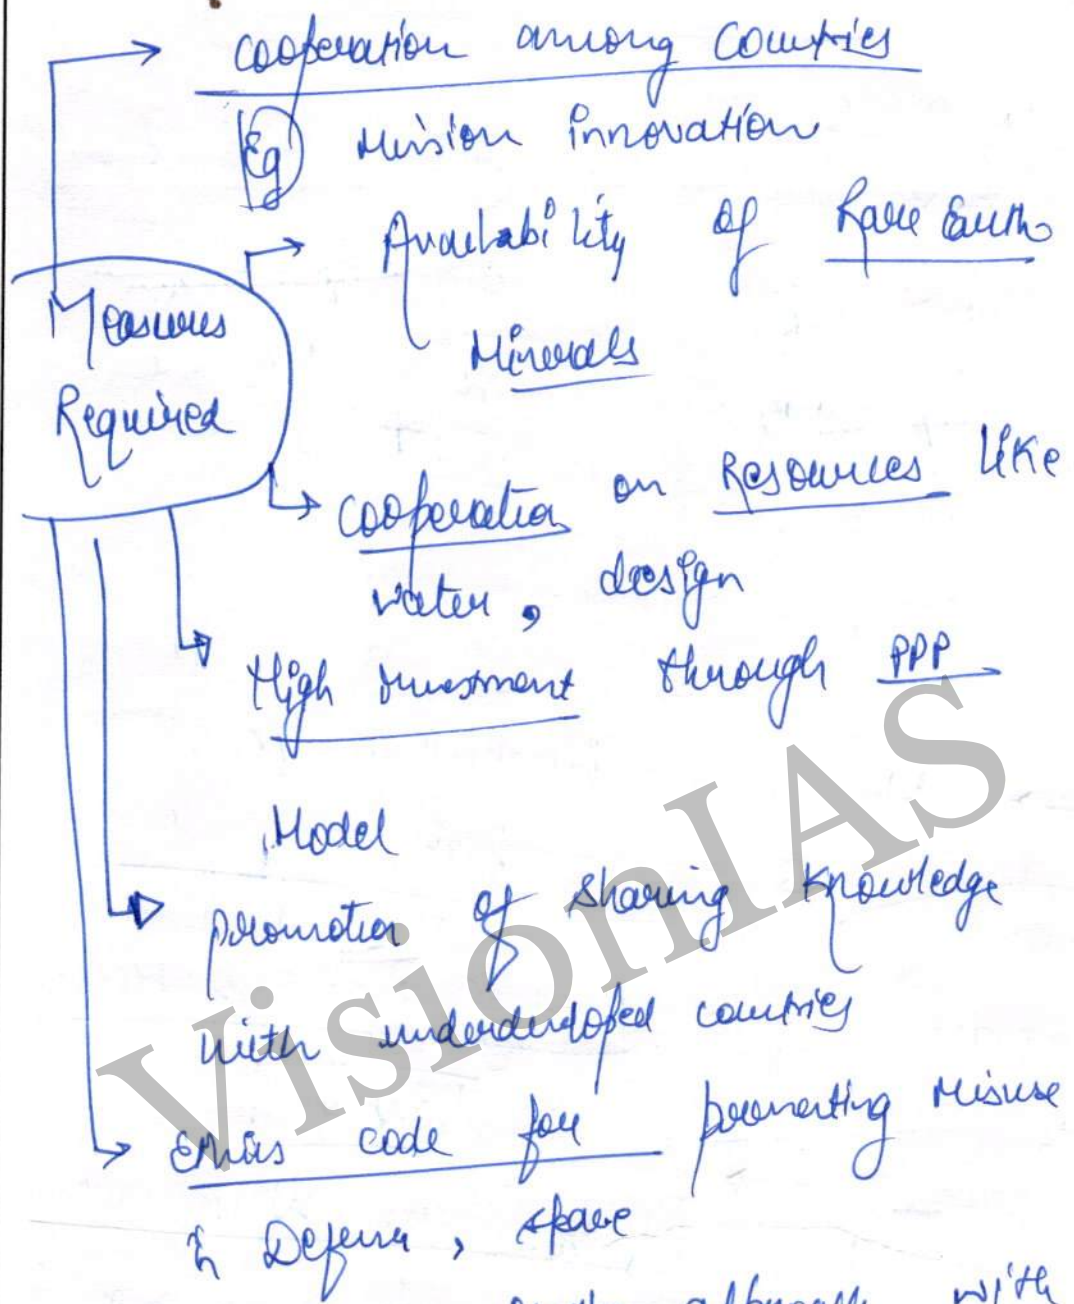 cooperation among countries
Eg Mission innovation
Availability of Rare Earth
Minerals
Measures
Required
cooperation on Resources like
water, design
High investment through PPP
Model
promotion of sharing knowledge
with underdeveloped countries
Ethics code for preventing misuse
in Defence, space
with
VisionIAS